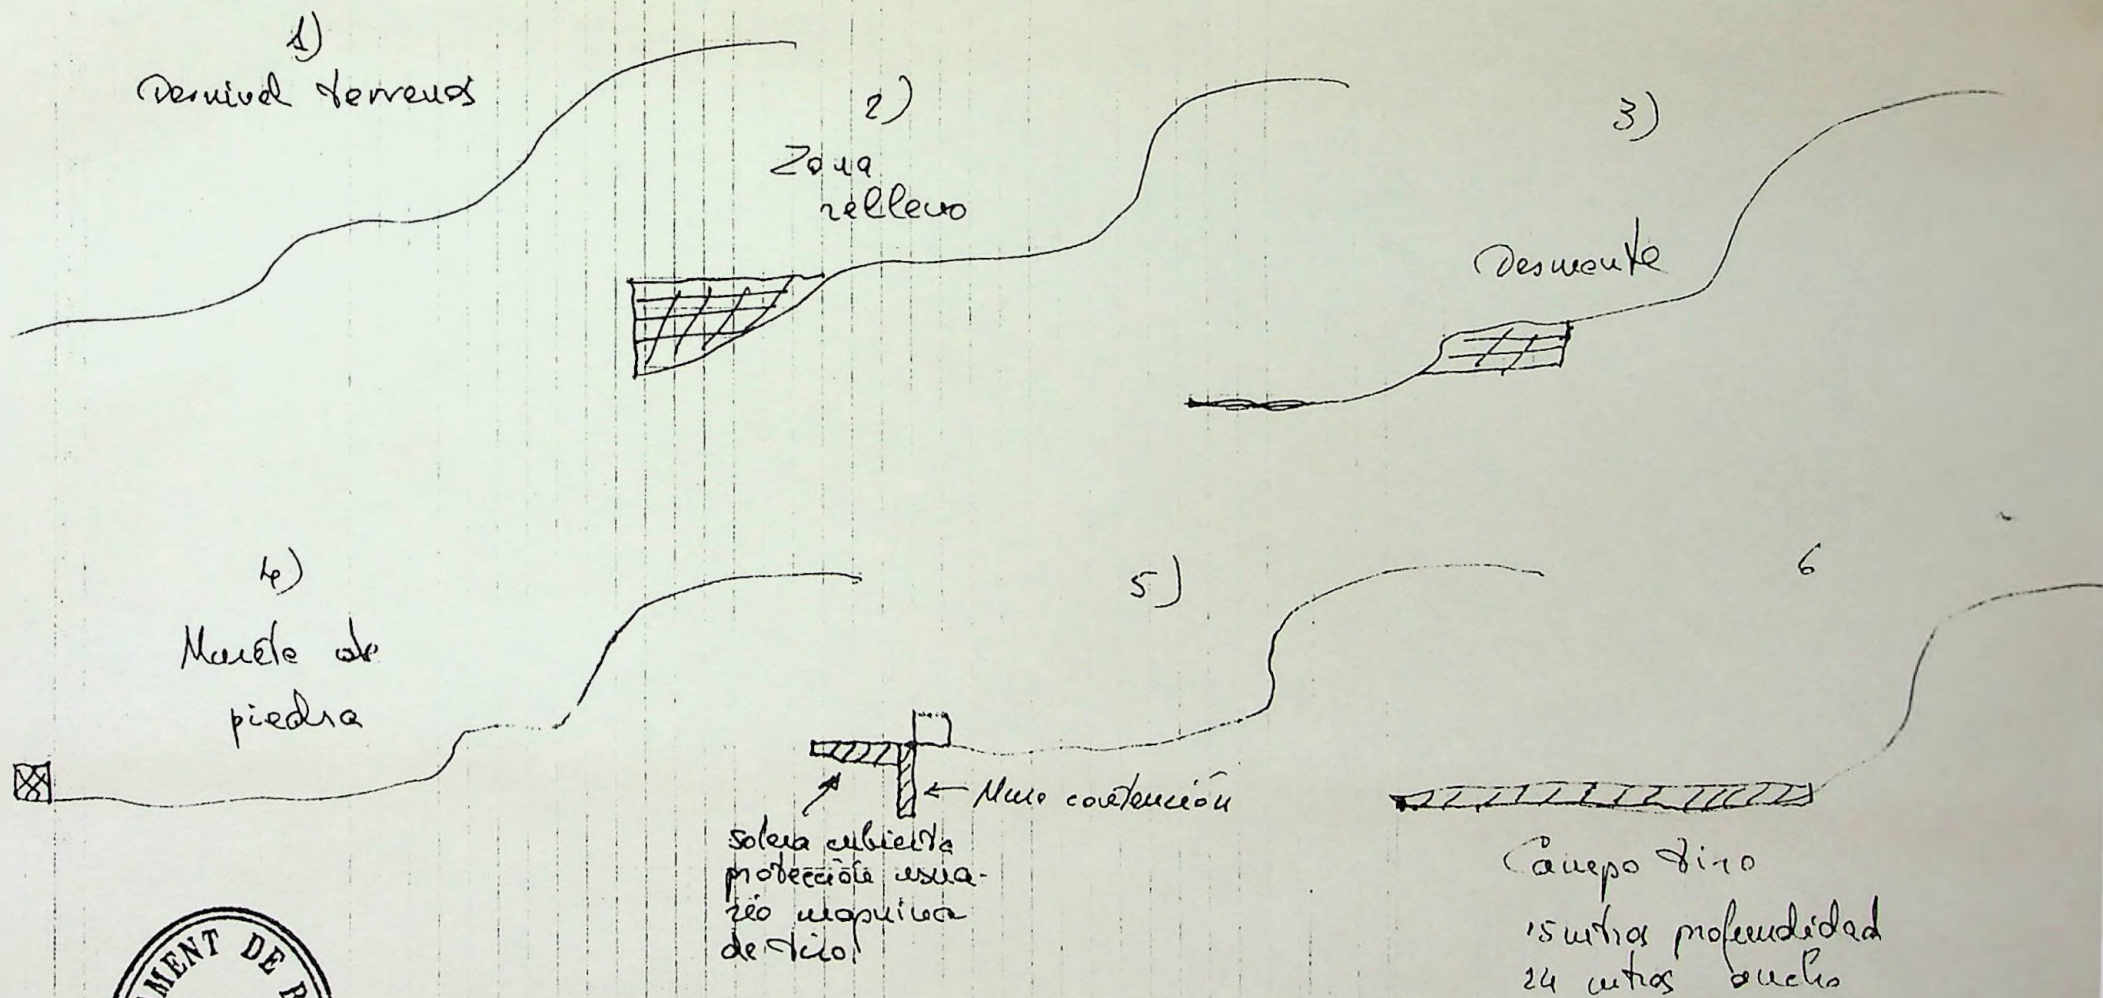 1)
Desnivel terrenos
2)
Zona
relleno
3)
Desmonte
4)
Murete de
piedra
5)
solera cubierta
protección usua-
rio maquina
de tiro
Muro contención
6
Campo tiro
15 metros profundidad
24 metros ancho
AMENT DE B